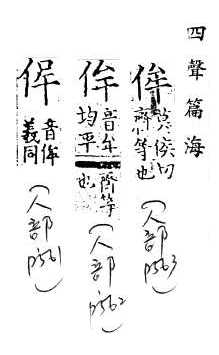 四聲篇海
侔
莫侯切
齊等也
(人部
P563)
音牟
均平
齊等
也
(人部
P562)
音侔
義同
(人部
P561)